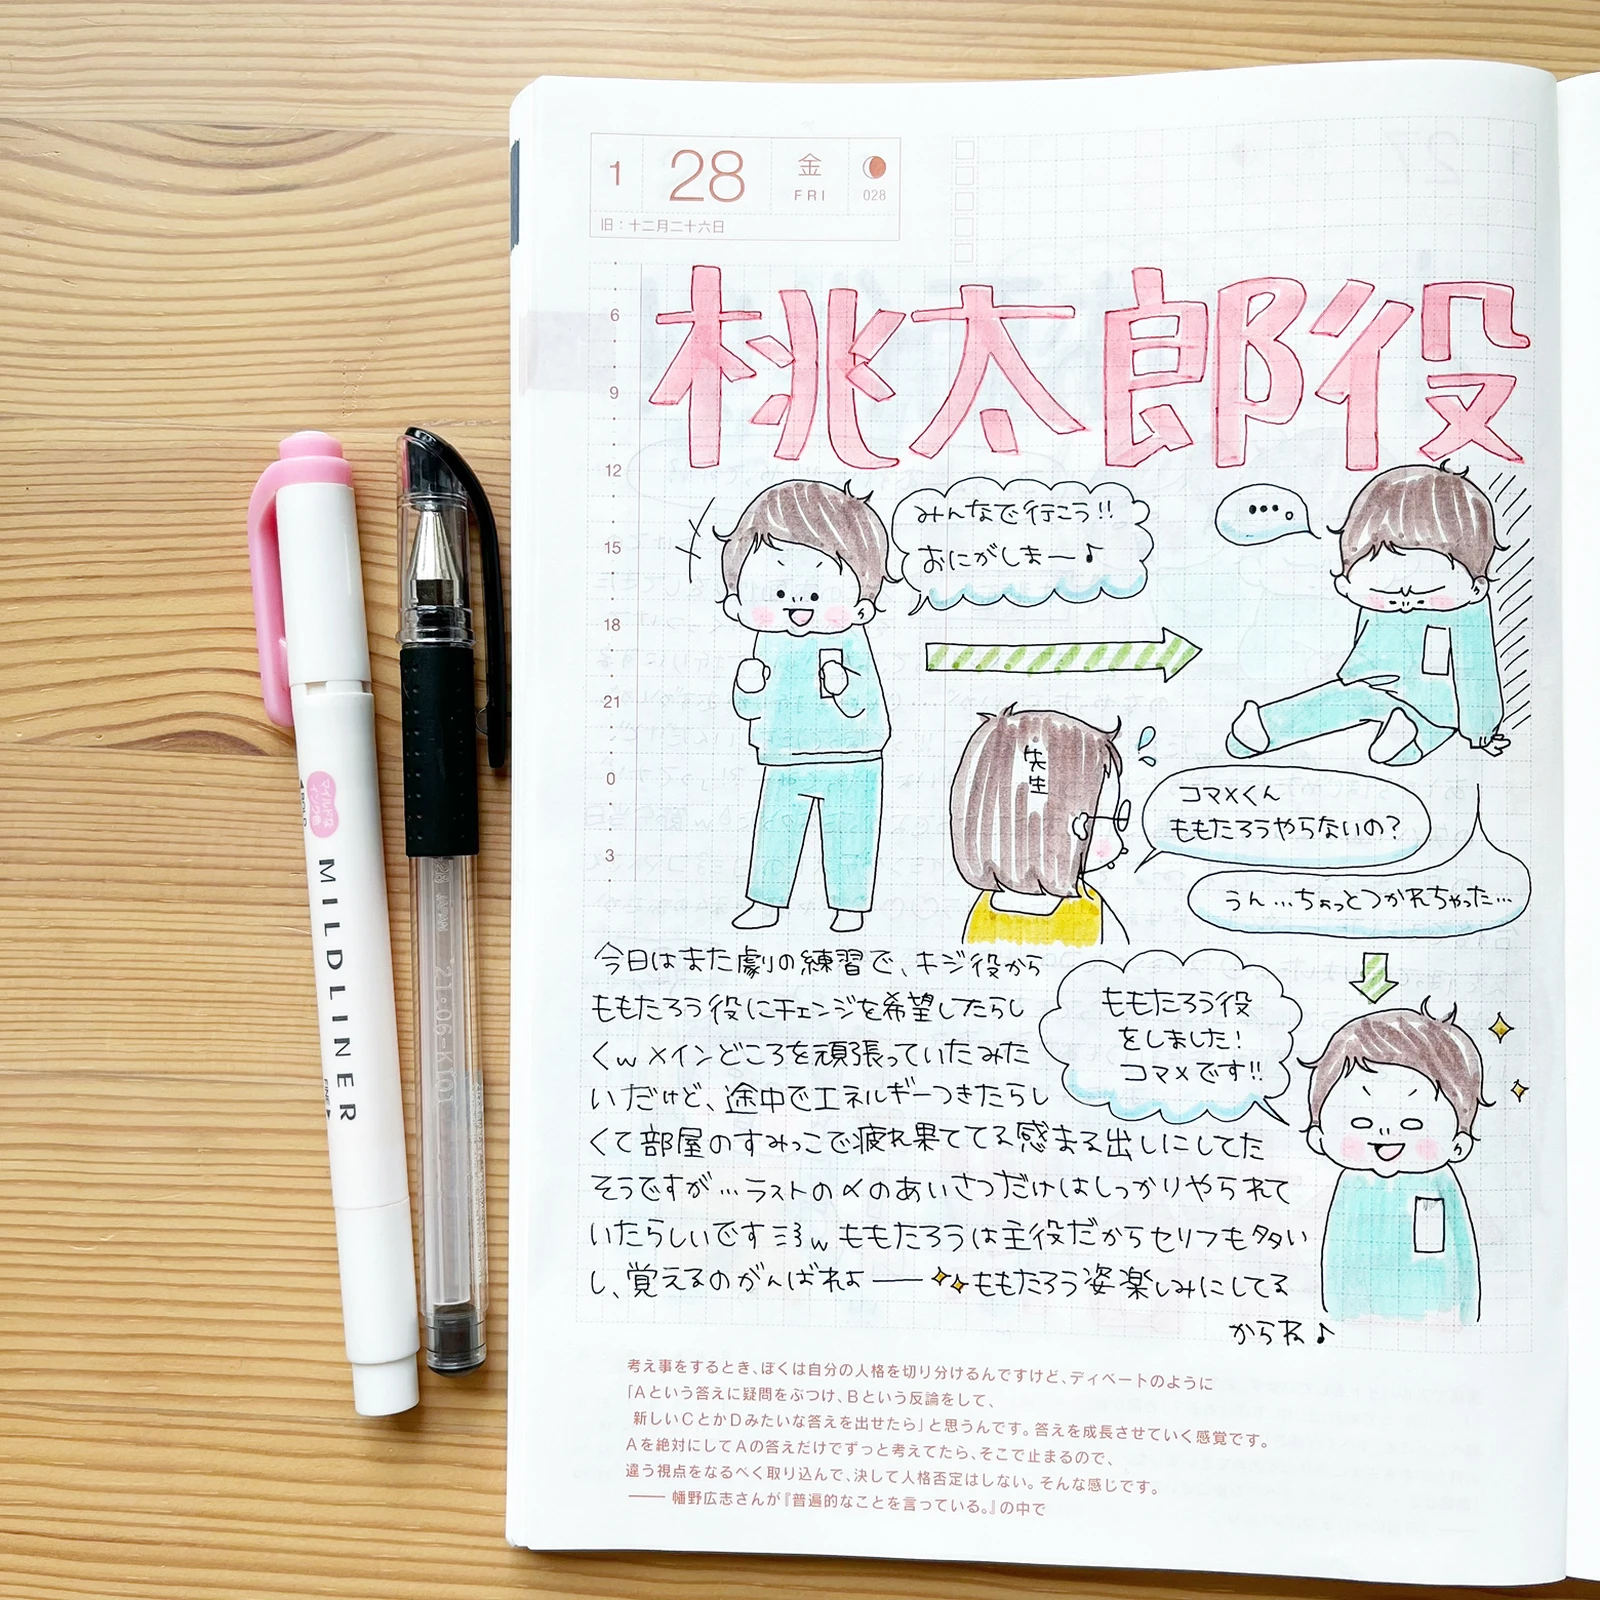 1 28 金 FRI 028
旧:十二月二十六日
桃太郎役
6
9
12
15
18
21
0
3
みんなで行こう!!
おにがしまー♪
•••。
先生
コマメくん
ももたろうやらないの?
うん…ちょっとつかれちゃった…
今日はまた劇の練習で、キジ役から
ももたろう役にチェンジを希望したらし
くw メインどころを頑張っていたみた
いだけど、途中でエネルギーつきたらし
くて部屋のすみっこで疲れ果ててる感まる出しにしてた
そうですが…ラストの〆のあいさつだけはしっかりやられて
いたらしいですミミw ももたろうは主役だからセリフも多い
し、覚えるのがんばれよーももたろう姿楽しみにしてる
からね♪
ももたろう役
をしました!
コマメです!!
考え事をするとき、ぼくは自分の人格を切り分けるんですけど、ディベートのように
「Aという答えに疑問をぶつけ、Bという反論をして、
新しいCとかDみたいな答えを出せたら」と思うんです。答えを成長させていく感覚です。
Aを絶対にしてAの答えだけでずっと考えてたら、そこで止まるので、
違う視点をなるべく取り込んで、決して人格否定はしない。そんな感じです。
── 幡野広志さんが『普遍的なことを言っている。』の中で
マイルドな
インク色
MILDLINER
FINE
BOLD